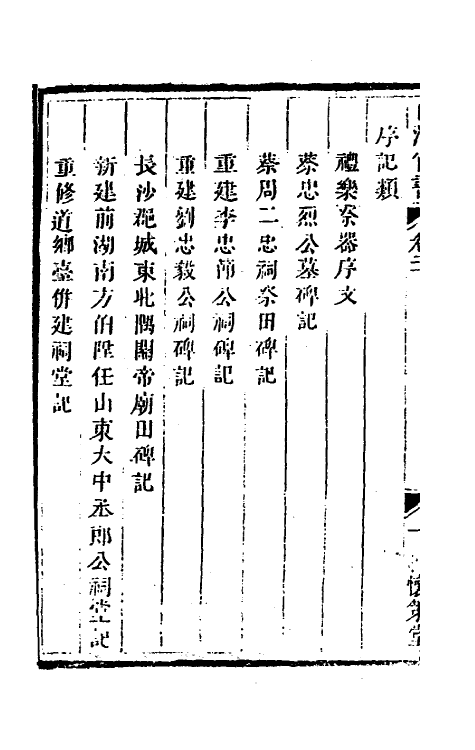 卷二
序記類
禮樂祭器序文
蔡忠烈公墓碑記
蔡周二忠祠祭田碑記
重建李忠節公祠碑記
重建劉忠毅公祠碑記
長沙郡城東北隅關帝廟田碑記
新建前湖南方伯陞任山東大中丞郎公祠堂記
重修道鄉臺併建祠堂記
一
懷策堂